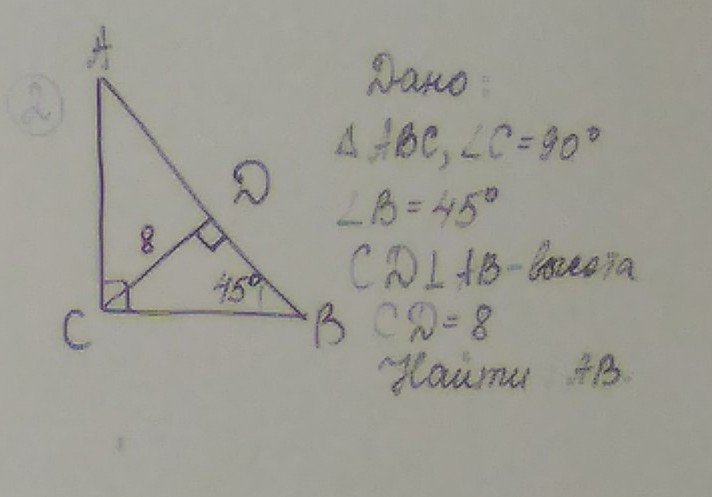 2
A
D
8
45°
C
B
Дано:
Δ ABC, ∠C = 90°
∠B = 45°
CD ⊥ AB - высота
CD = 8
Найти AB.